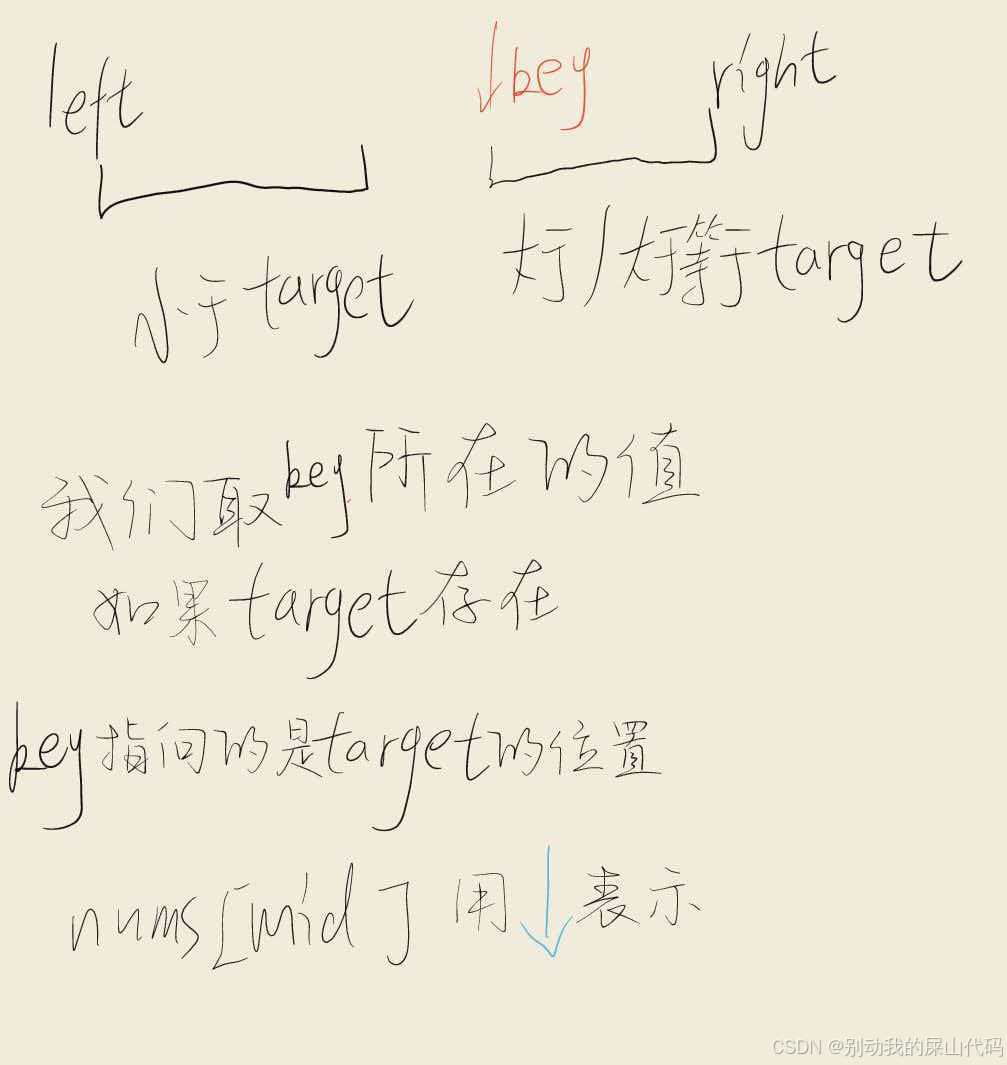 left
key
right
小于target
大于/大于等于target
我们取key所在的值
如果target存在
key指向的是target的位置
nums[mid]用↓表示
CSDN @别动我的屎山代码